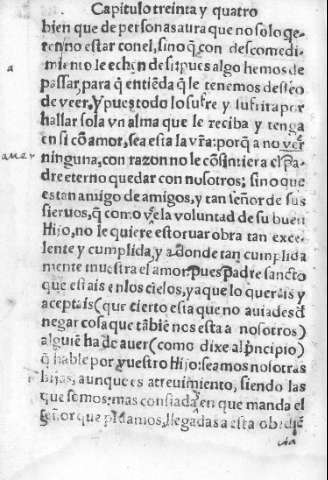 Capitulo treinta y quatro
bien que de personas aura que no solo qe-
ten no estar con el, sino q̃ con descomedi-
miento le echen de si: pues algo hemos de
passar, para q̃ entiẽda q̃ le tenemos desseo
de veer. Y pues todo lo sufre y sufrira por
hallar sola vn alma que le reciba y tenga
en si cõ amor, sea esta la vr̃a: porq̃ a no ver
ninguna, con razon no le cõsintiera el pa-
dre eterno quedar con nosotros; sino que
es tan amigo de amigos, y tan señor de sus
sieruos, q̃ como vee la voluntad de su buen
Hijo, no le quiere estoruar obra tan exce-
lente y cumplida, y adonde tan cumplida
mente muestra el amor. Pues Padre sancto
que estais en los cielos, ya que lo quereis y
aceptais (que cierto esta que no auiades d̃
negar cosa que tãbiẽ nos esta a nosotros)
alguiẽ ha de auer (como dixe al prĩcipio)
q̃ hable por vuestro Hijo: seamos nosotras
hijas, aunque es atreuimiento, siendo las
que somos: mas confiadas en que manda el
señor que pidamos, llegadas a esta obediẽ
cia
a